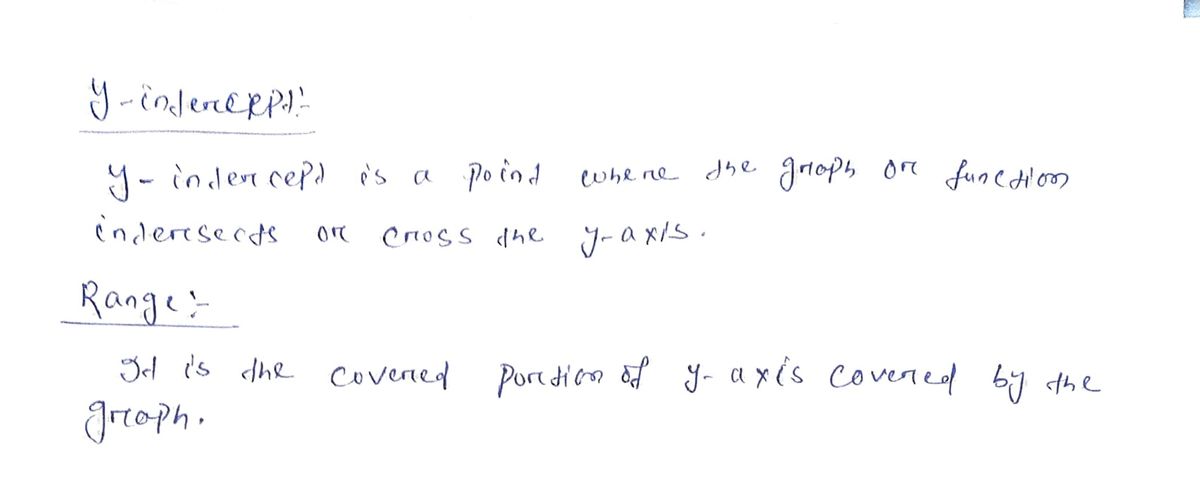 y-intercept:-
y-intercept is a point where the graph or function
intersects or cross the y-axis.
Range:-
It is the covered portion of y-axis covered by the
graph.